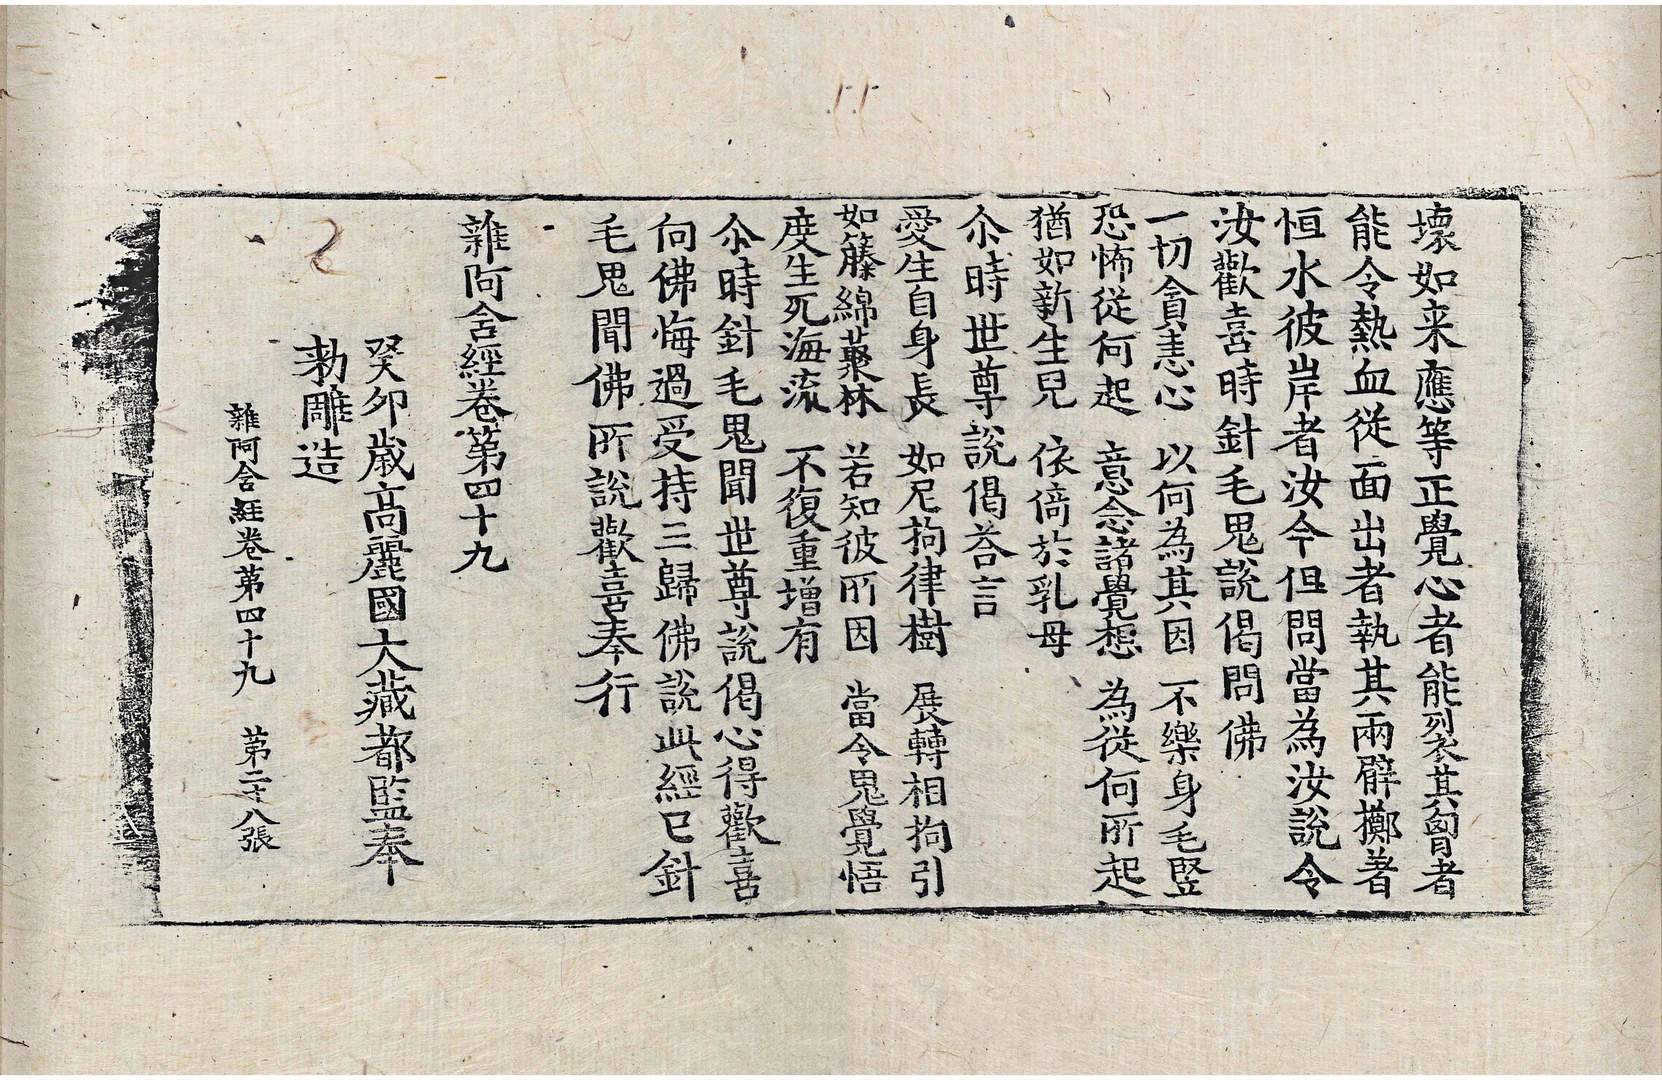 壞如来應等正覺心者能列衣其匈者
能令熱血從面出者執其兩臂擲著
恒水彼岸者汝今但問當為汝說令
汝歡喜時針毛鬼說偈問佛
一切貪恚心　以何為其因　不樂身毛竪
恐怖從何起　意念諸覺想　為從何所起
猶如新生兒　依倚於乳母
尒時世尊說偈荅言
愛生自身長　如尼拘律樹　展轉相拘引
如籐綿藂林　若知彼所因　當令鬼覺悟
度生死海流　不復重增有
尒時針毛鬼聞世尊說偈心得歡喜
向佛悔過受持三歸佛說此經已針
毛鬼聞佛所說歡喜奉行
雜阿含經卷第四十九
癸卯歲高麗國大藏都監奉
勅雕造
雜阿含経卷第四十九　第二十八張